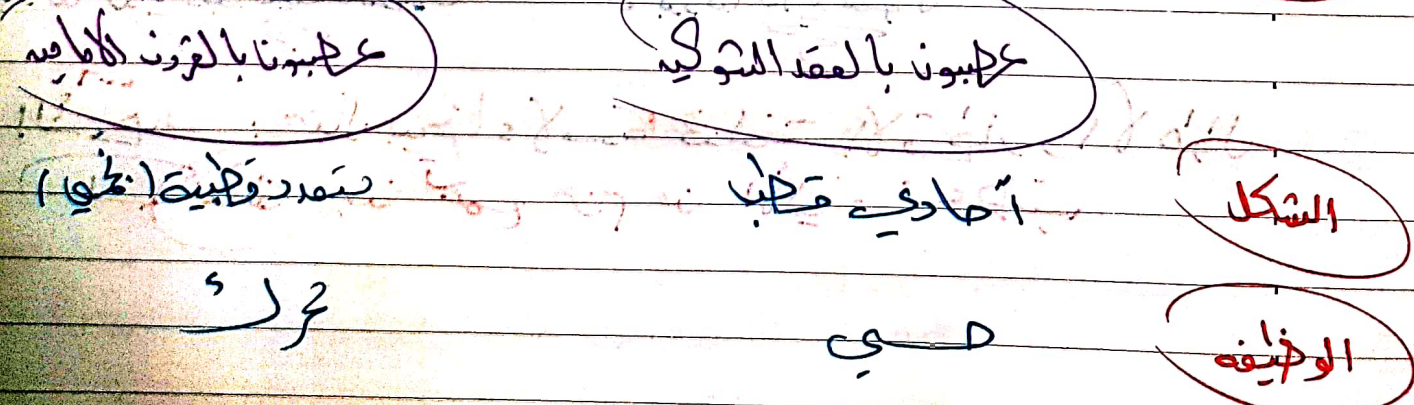 عصبونا بالعقد الشوكية عصبونا بالقرون الأمامية
الشكل أحادي قطب متعدد قطبية (نجمي)
الوظيفه حسي محرك